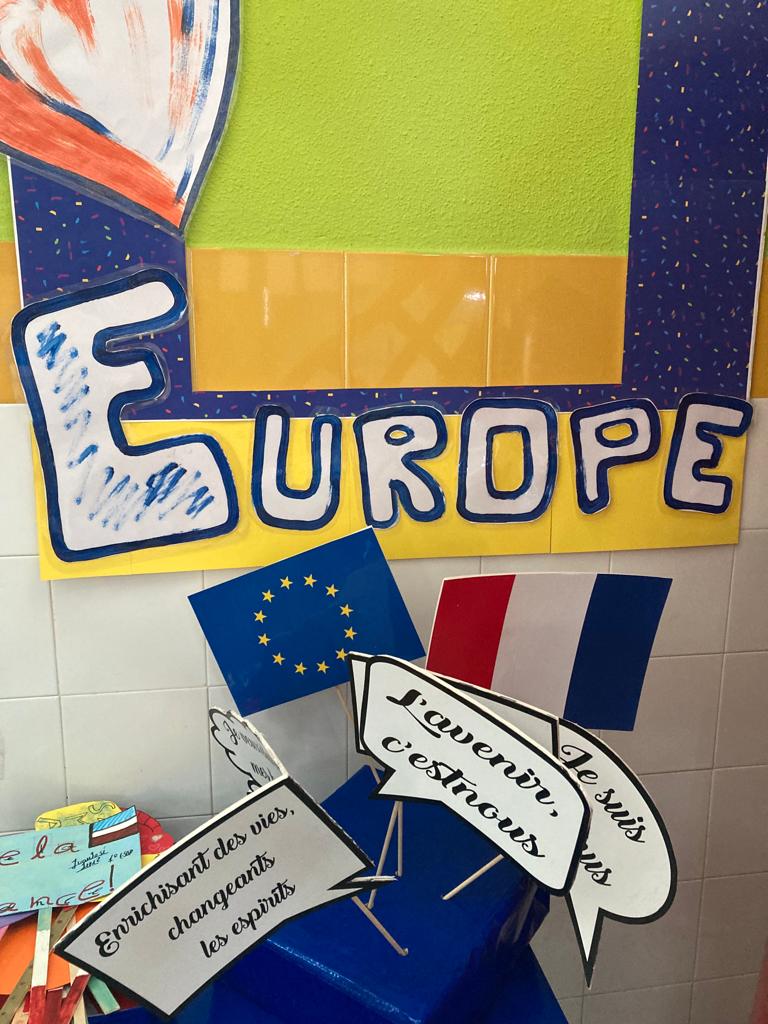 EUROPE
L'avenir,
c'estnous
Je suis
Enrichisant des vies,
changeants
les espirits
e la